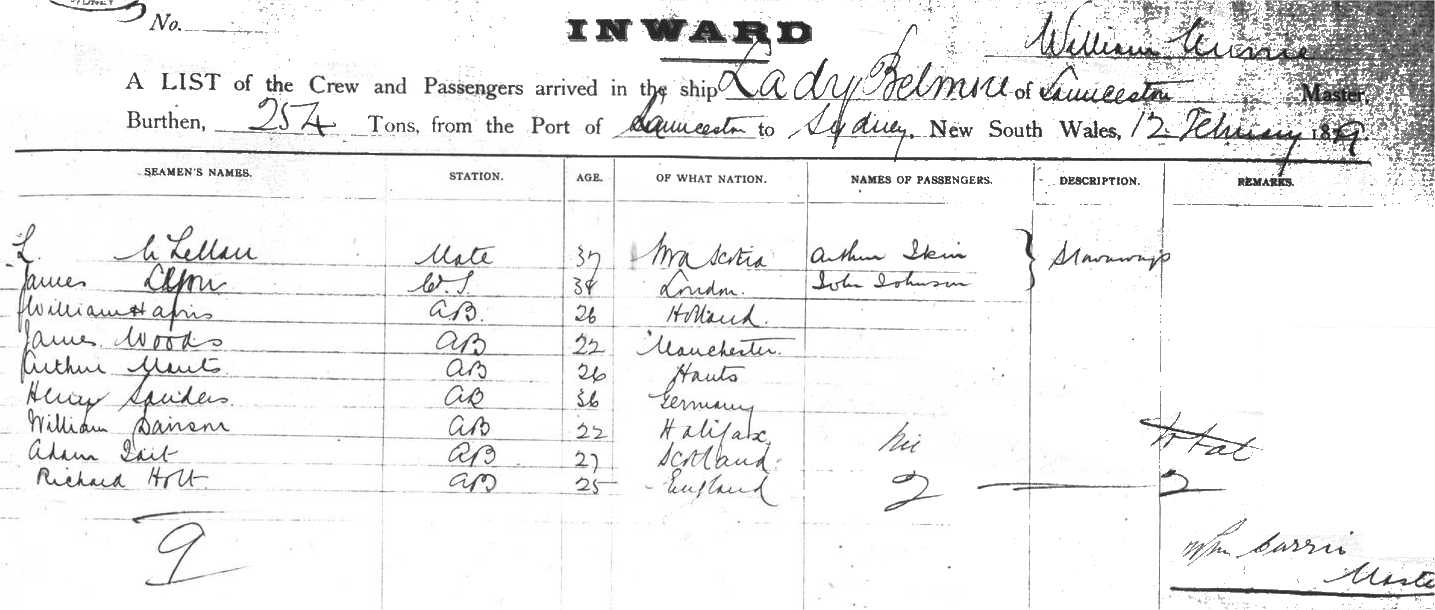 SYDNEY
No.
INWARD
William Currie
A LIST of the Crew and Passengers arrived in the ship Lady Belmore of Launceston Master,
Burthen, 254 Tons, from the Port of Launceston to Sydney, New South Wales, 12 February 18
SEAMEN'S NAMES. STATION. AGE. OF WHAT NATION. NAMES OF PASSENGERS. DESCRIPTION. REMARKS.
L. McLellan Mate 37 Nva Scotia Arthur Skin } Stowaways
James 38 London. John Johnson
William Harris AB. 26 Holland.
James Woods AB 22 Manchester.
Arthur Mants AB 26 Hants
Henry Sanders. AB 36 Germany
William AB 22 Halifax,
Adam Tait AB 27 Scotland.
nil total
Richard Holt. AB 25 England 2 2
9
Wm Currie
Maste